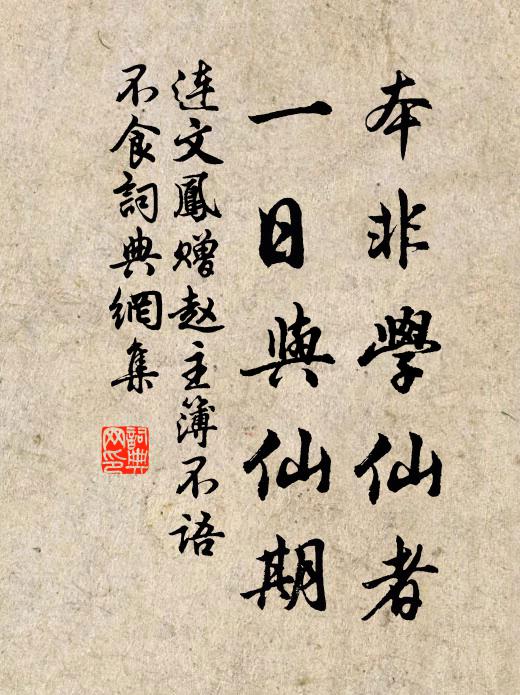 本非學仙者
一日與仙期
连文鳳赠赵主簿不语
不食詞典網集
詞典
网印